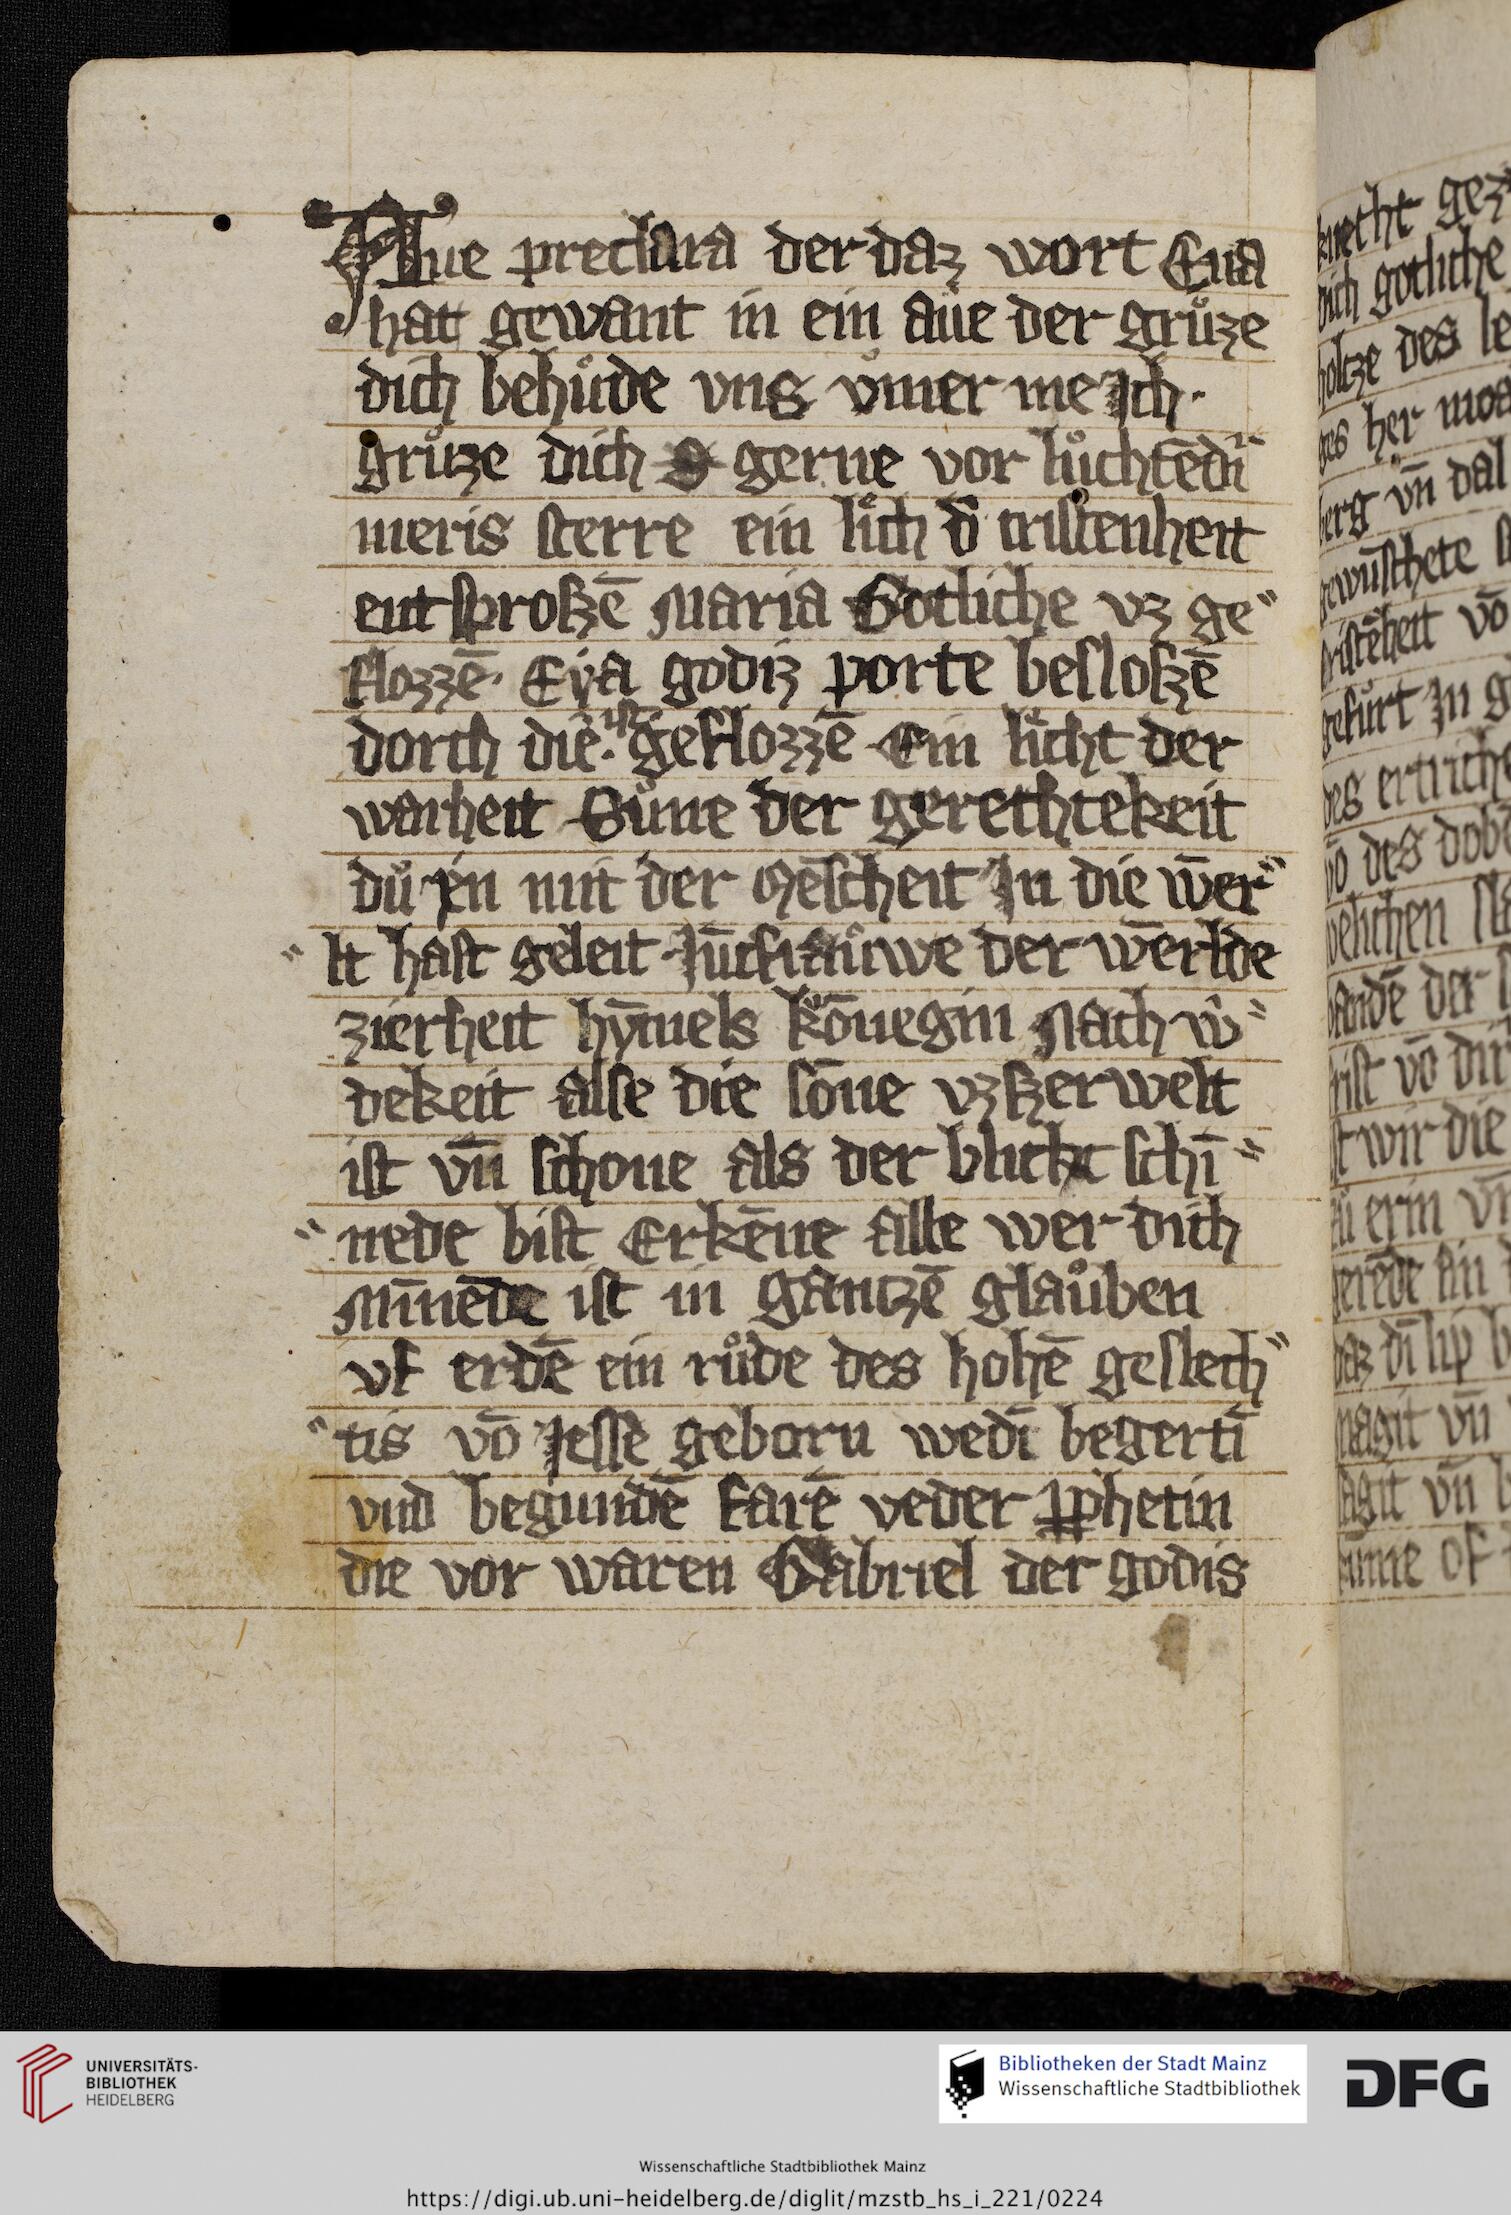 Aue preclara der daz wort Eua
hat gewant in ein aue der gruͦze
dich behuͦde vns vͦmer me Ich·
gruͦze dich gerne vor luͦchtēdī
meris sterre ein liͤch d̄ cristenheit
entsproszē Maria Gotliche vz ge〃
flozzē· Eẏa godiz porte besloszē
dorch die· ist geflozzē Ein liͤcht der
warheit Suͦne der gerechtekeit
duͦ in mit der mēscheit In die w̄er〃
〃lt hast geleit Jūcfrauͦwe der w̄erlde
zierheit hȳmels kōnegin Nach w〃
dekeit alse die sōne vzszerwelt
ist vn̄ schone als der blickt schī〃
〃nede bist Erkēne alle wer dich
Mīnēde ist in gantzē glauͦben
vf erdē ein ruͦde des hohē geslech〃
〃tis vō Jesse geborn wedī begertī
vnd begundē farē veder ꝓphetin
die vor waren Gabriel der godis
knecht
dich gotliche
holtze des le
berg vn̄ dal
des ertriche
vō des
welichen
bandē der
wir die
erin vn̄
UNIVERSITÄTS-
BIBLIOTHEK
HEIDELBERG
Bibliotheken der Stadt Mainz
Wissenschaftliche Stadtbibliothek
DFG
Wissenschaftliche Stadtbibliothek Mainz
https://digi.ub.uni-heidelberg.de/diglit/mzstb_hs_i_221/0224